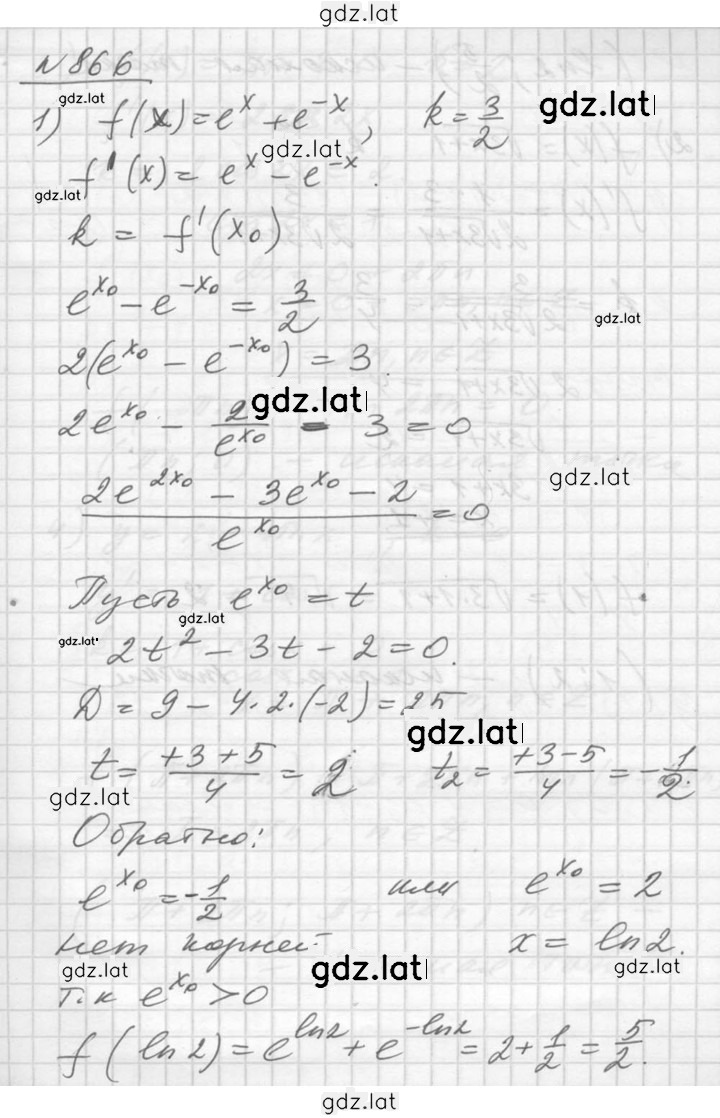 gdz.lat
N 866
gdz.lat
1) f(x) = e^x + e^{-x}, k = 3/2
gdz.lat
gdz.lat
f'(x) = e^x - e^{-x}.
gdz.lat
k = f'(x₀)
e^{x₀} - e^{-x₀} = 3/2
gdz.lat
2(e^{x₀} - e^{-x₀}) = 3.
gdz.lat
2e^{x₀} - 2/e^{x₀} - 3 = 0
gdz.lat
(2e^{2x₀} - 3e^{x₀} - 2)/e^{x₀} = 0
Пусть e^{x₀} = t
gdz.lat
gdz.lat
2t² - 3t - 2 = 0.
D = 9 - 4·2·(-2) = 25
gdz.lat
t = (+3+5)/4 = 2 t₂ = (+3-5)/4 = -1/2
gdz.lat
Обратно:
e^{x₀} = -1/2 или e^{x₀} = 2
нет корней x = ln2.
gdz.lat
gdz.lat
gdz.lat
т.к e^{x₀} > 0
f(ln2) = e^{ln2} + e^{-ln2} = 2 + 1/2 = 5/2.
gdz.lat